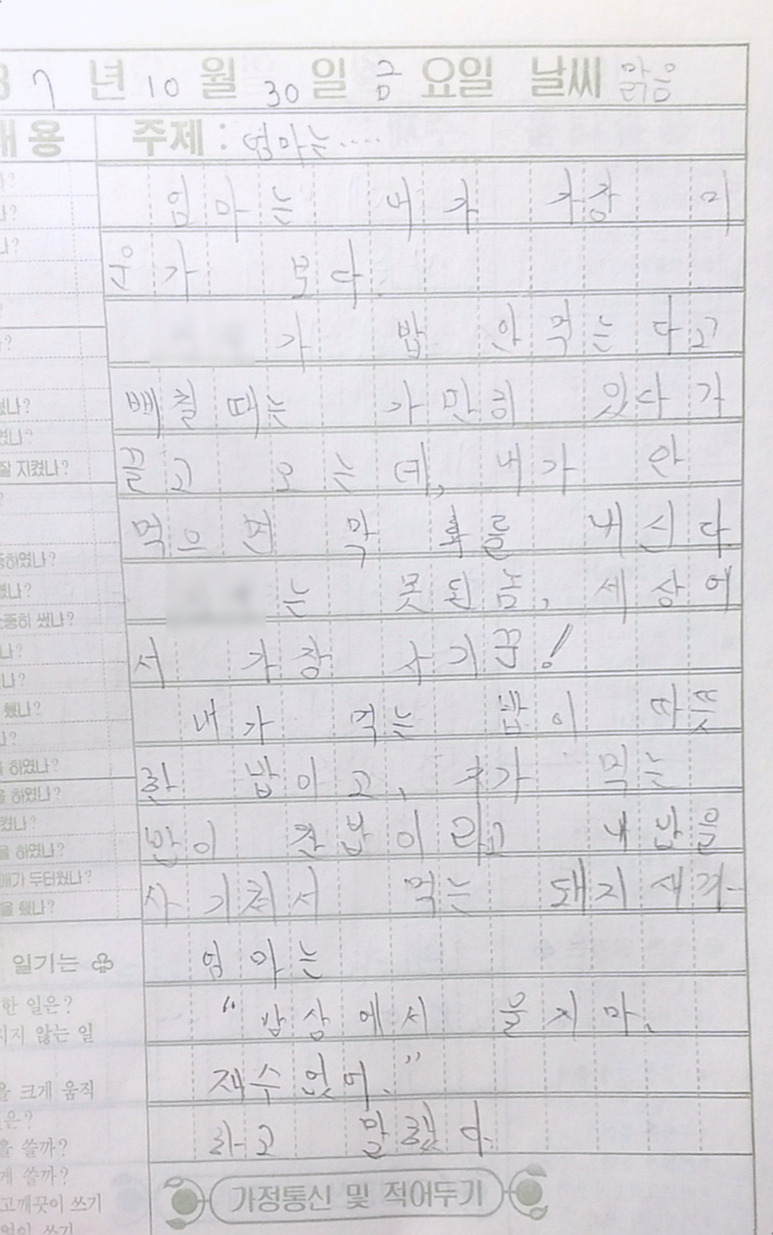 7년 10월 30일 금요일 날씨 맑음
내용 주제 : 엄마는....
엄마는 내가 가장 미
운가 보다.
가 밥 안 먹는다고
빼칠때는 가만히 있다가
끌고 오는데, 내가 안
먹으면 막 화를 내신다.
는 못된놈, 세상에
서 가장 사기꾼!
내가 먹는 밥이 따뜻
한 밥이고, 지가 먹는
밥이 찬밥이라고 내 밥을
사기쳐서 먹는 돼지새끼.
엄마는
"밥상에서 울지마.
재수 없어."
라고 말했다.
잘 지켰나?
중히 썼나?
했나?
하였나?
하였나?
하였나?
매가 두터웠나?
을 했나?
일기는
한 일은?
지 않는 일
을 크게 움직
은?
을 쓸까?
게 쓸까?
고깨끗이 쓰기
없이 쓰기
가정통신 및 적어두기